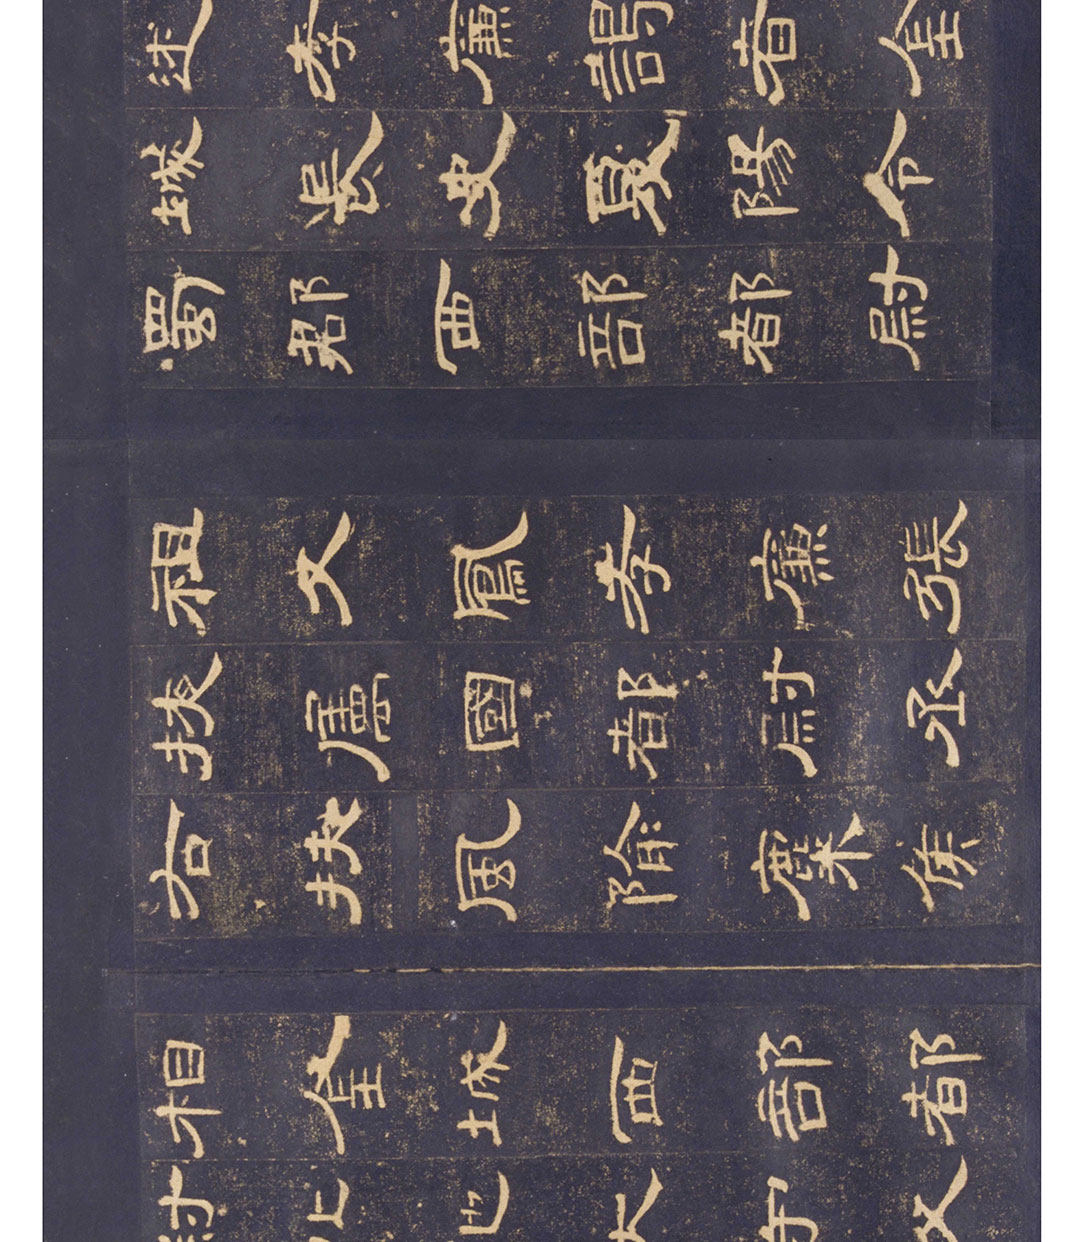 述孝廉謁者金
城長史夏陽令
蜀郡西部都尉
祖父鳳孝廉張
掖屬國都尉丞
右扶風隃麋侯
相金城西部都
尉北地太守父